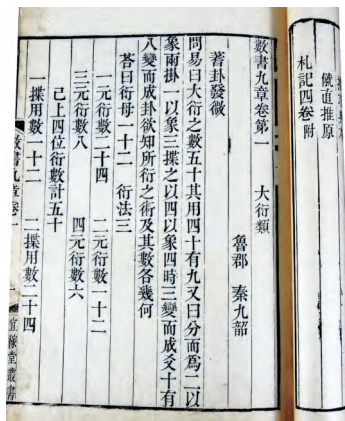 推原
札記四卷附
數書九章卷第一 大衍類
魯郡 秦九韶
蓍卦發微
問易曰大衍之數五十其用四十有九又曰分而爲二以
象兩掛一以象三揲之以四以象四時三變而成爻十有
八變而成卦欲知所衍之術及其數各幾何
荅曰衍母一十二 衍法三
一元衍數二十四 二元衍數一十二
三元衍數八 四元衍數六
已上四位衍數計五十
一揲用數一十二 二揲用數二十四
數書九章卷一 宜稼堂叢書